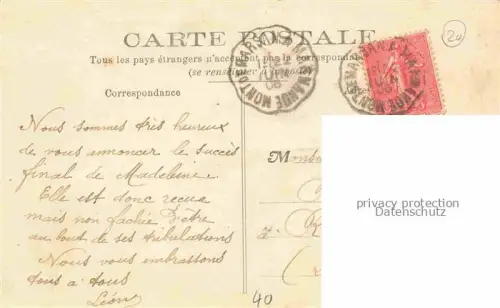 24
CARTE POSTALE
Tous les pays étrangers n'acceptent pas la correspondance
(se renseigner à la poste)
MONT-DE-MARSAN À MARMANDE
22
JUIN
06
Correspondance
Nous sommes très heureux
de vous annoncer le succès
final de Madeleine.
Elle est donc reçue
mais non fachée d'être
au bout de ses tribulations
Nous vous embrassons
tous à tous
Léon
Mons
privacy protection
Datenschutz
40